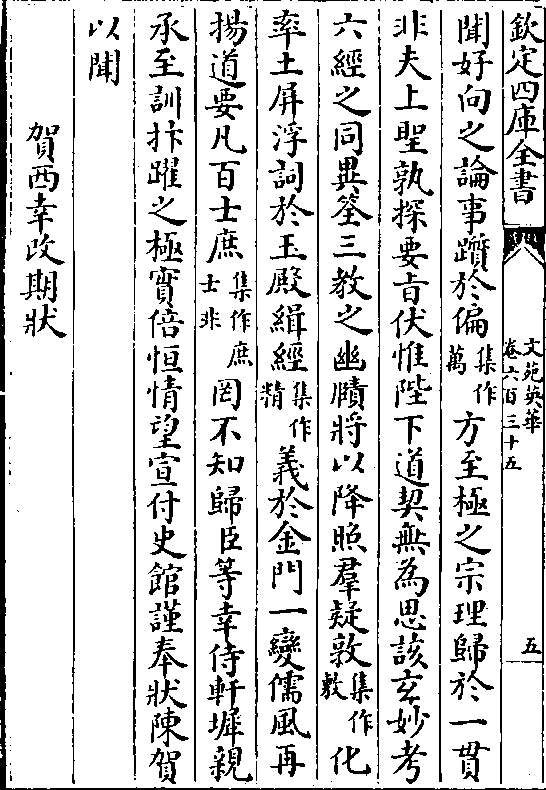 欽定四庫全書
文苑英華
卷六百三十五
五
聞好向之論事躓於偏集作萬方至極之宗理歸於一貫
非夫上聖孰探要㫖伏惟陛下道契無為思該玄妙考
六經之同異筌三教之幽賾將以降照羣疑敦集作敷化
率土屏浮詞於玉殿緝經集作精義於金門一變儒風再
揚道要凡百士庶集作庶士非罔不知歸臣等幸侍軒墀親
承至訓抃躍之極實倍恒情望宣付史館謹奉狀陳賀
以聞
賀西幸改期狀